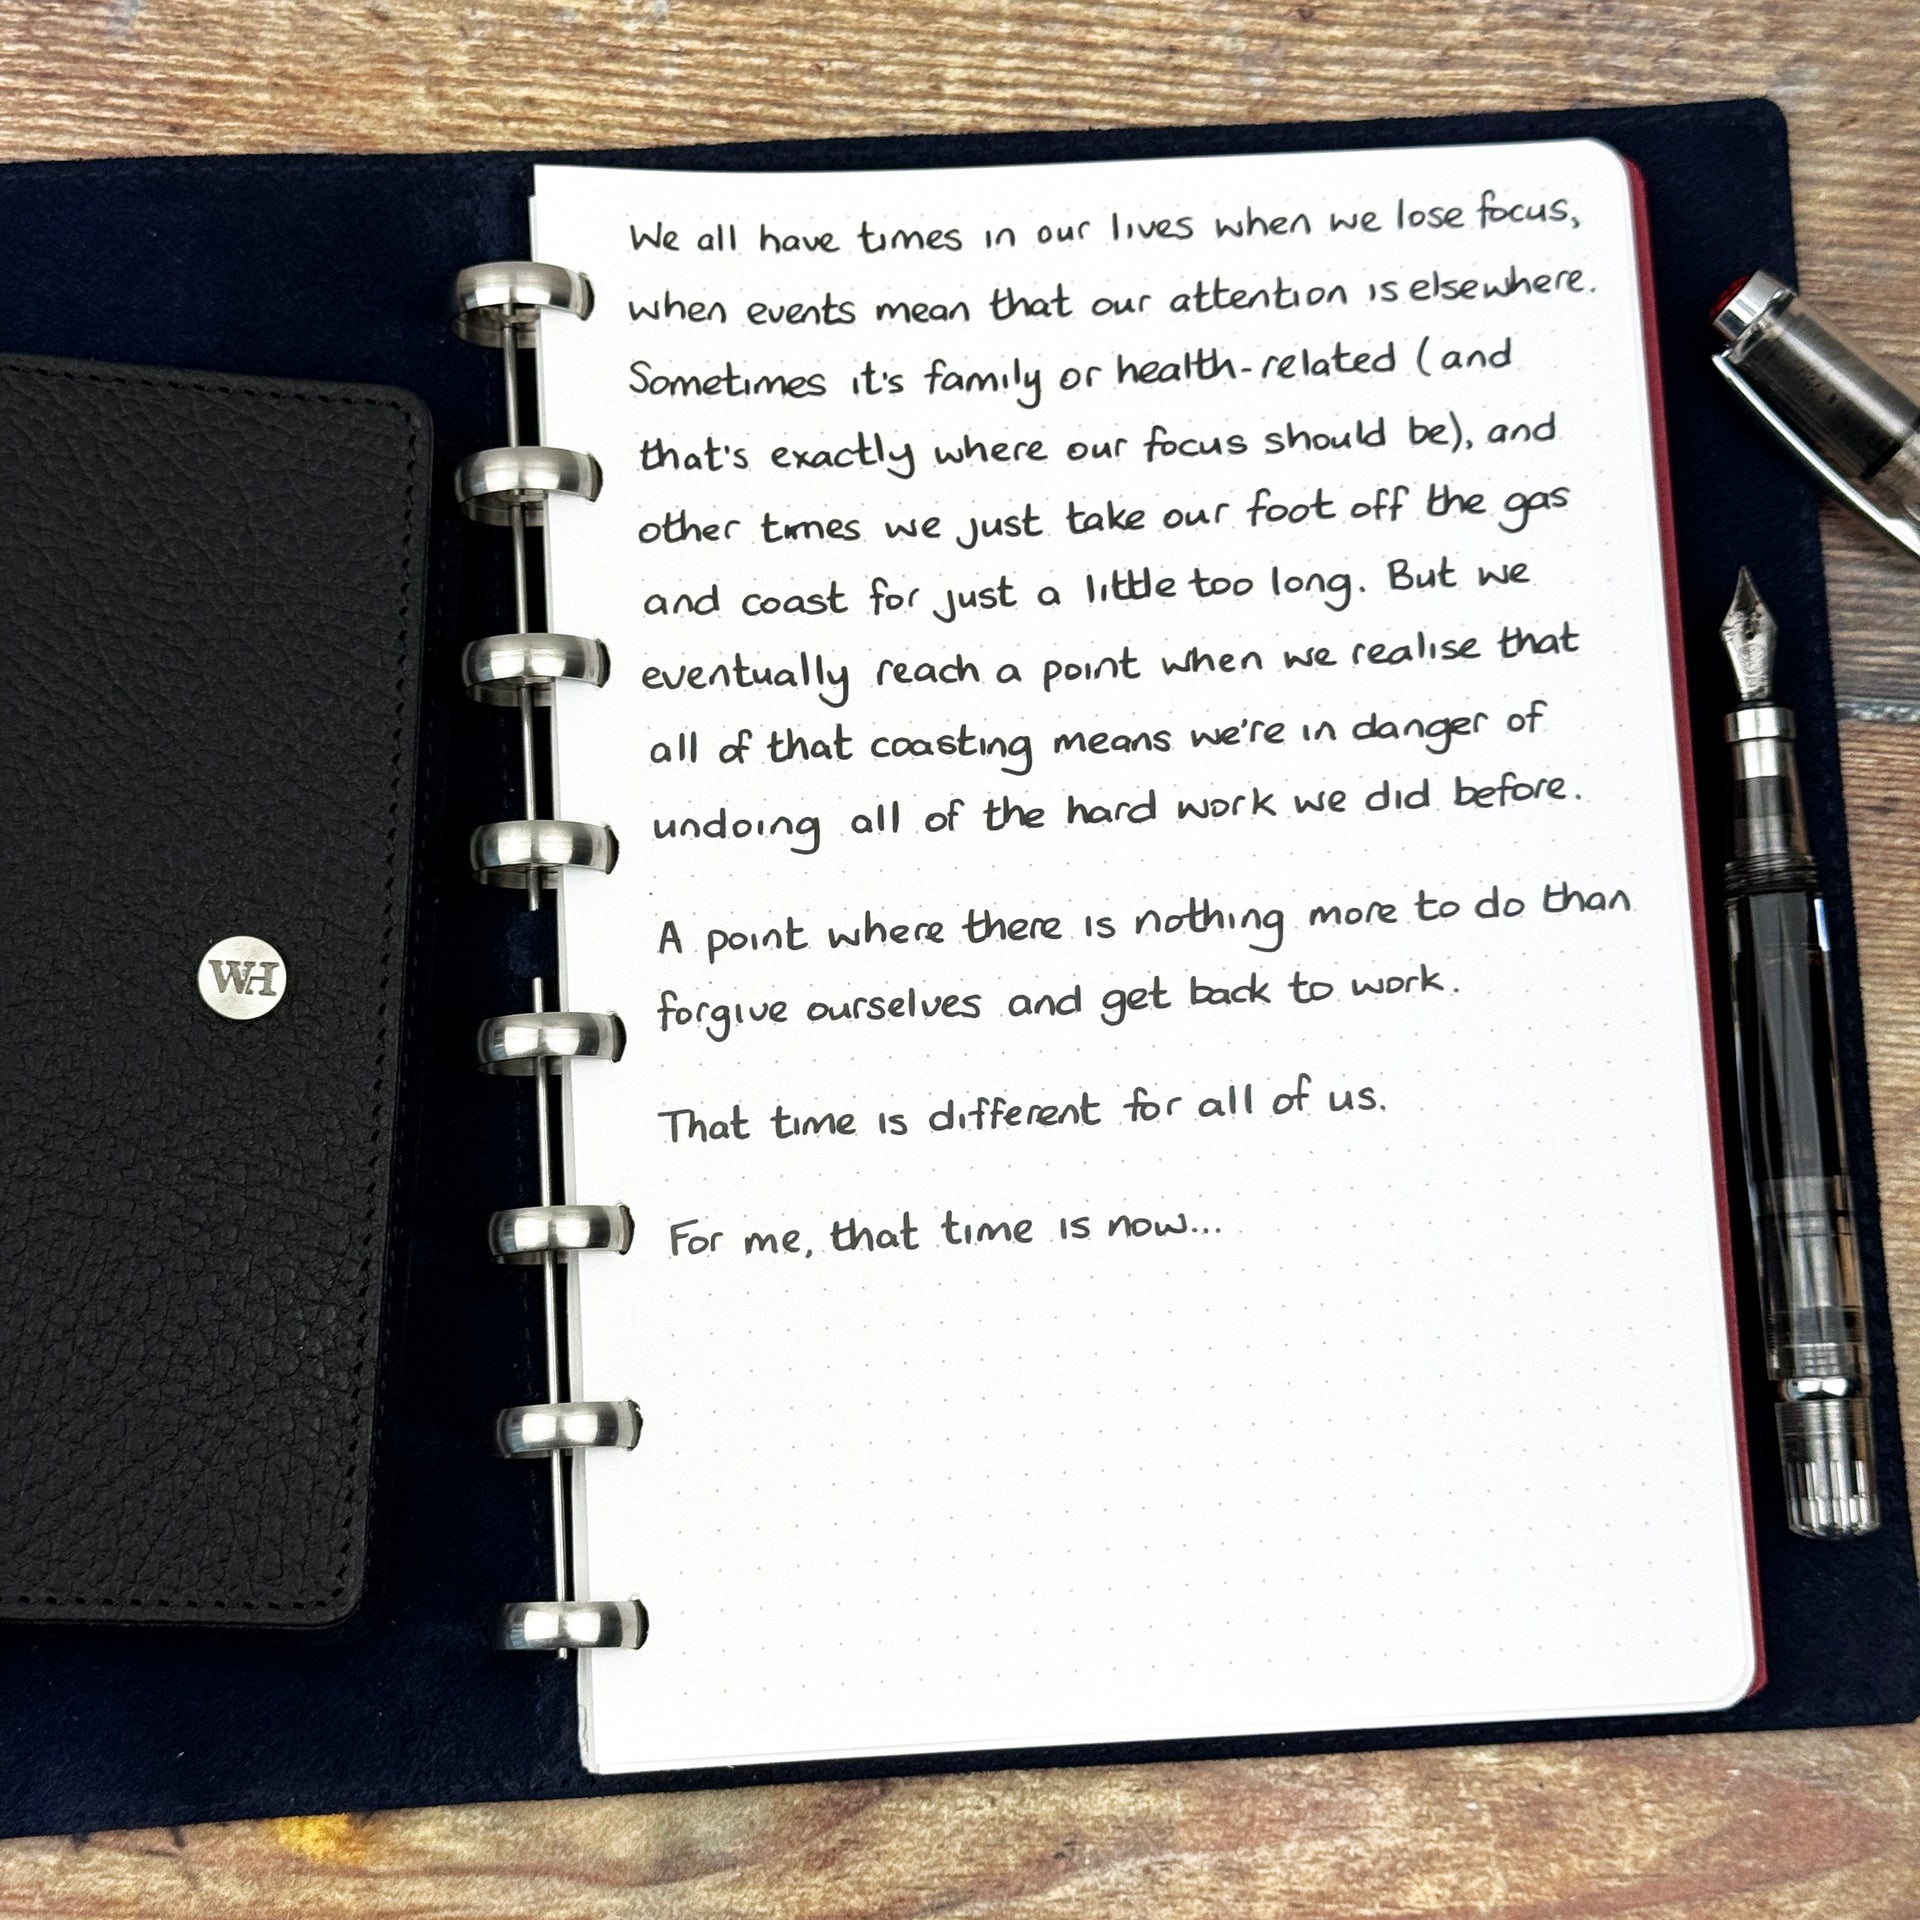 We all have times in our lives when we lose focus,
when events mean that our attention is elsewhere.
Sometimes it's family or health-related (and
that's exactly where our focus should be), and
other times we just take our foot off the gas
and coast for just a little too long. But we
eventually reach a point when we realise that
all of that coasting means we're in danger of
undoing all of the hard work we did before.
A point where there is nothing more to do than
forgive ourselves and get back to work.
That time is different for all of us.
For me, that time is now...
WH